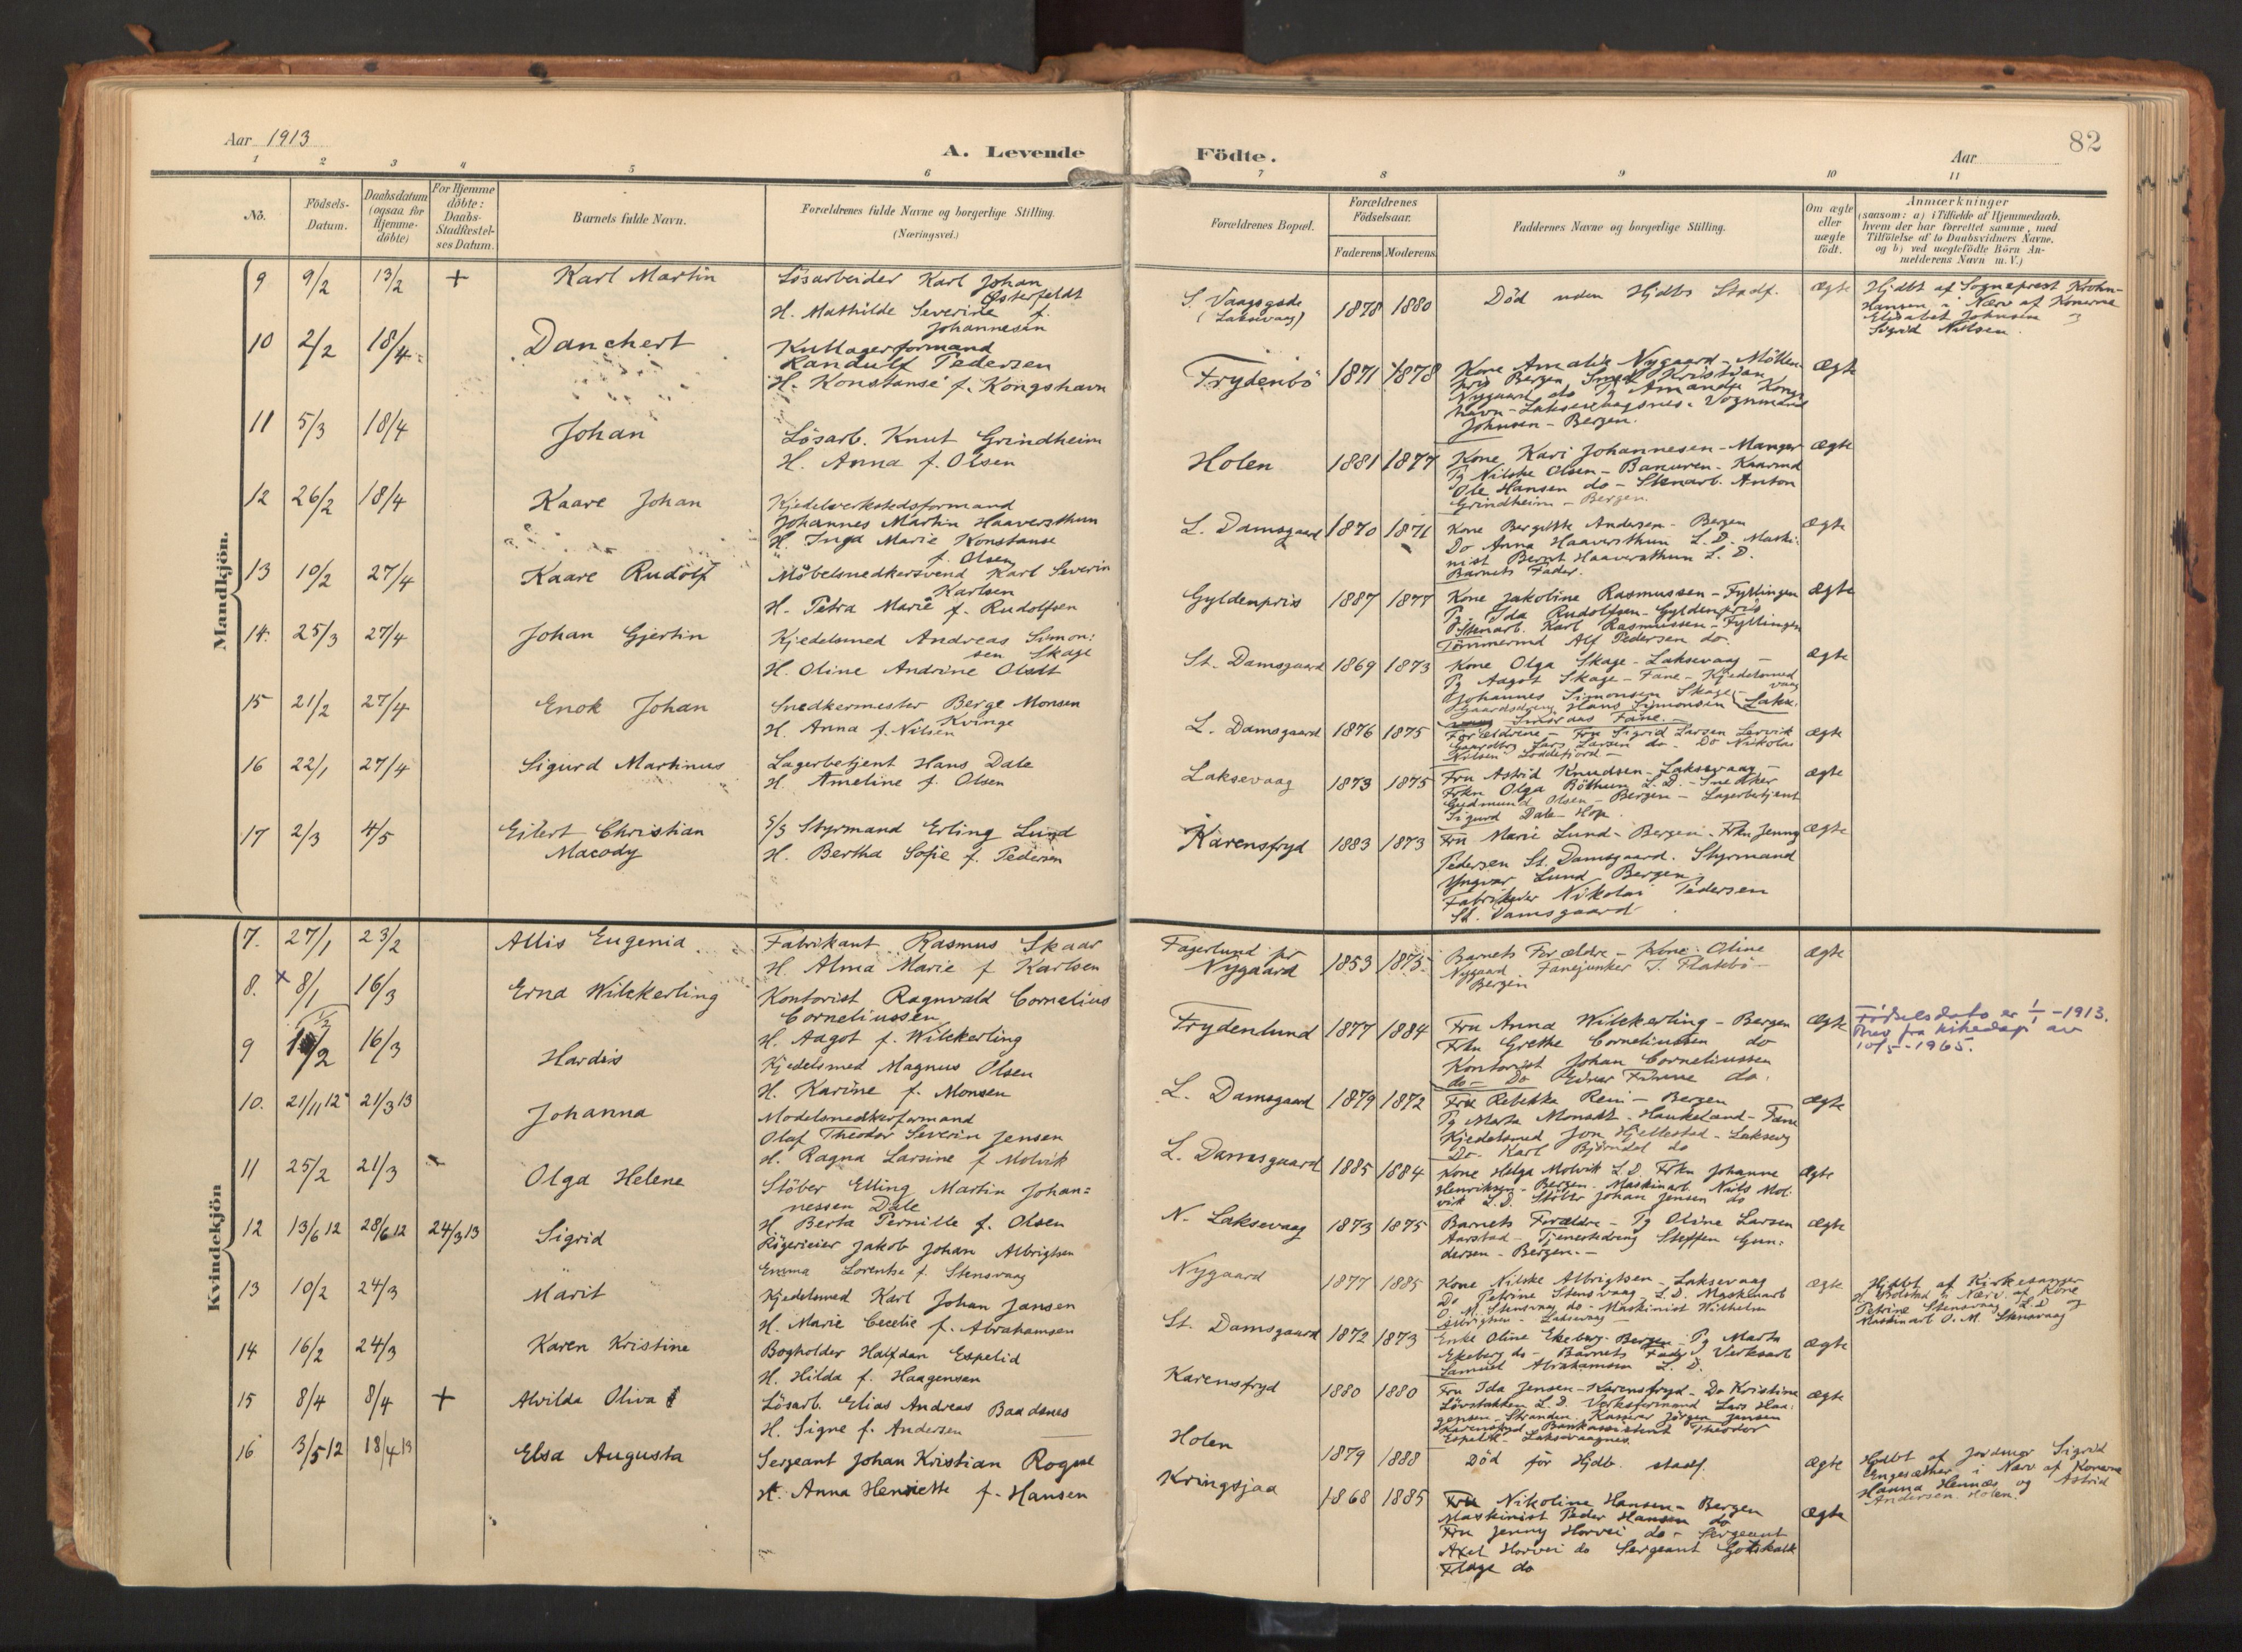 Aar 1913
A. Levende
Födte.
Aar
82
1 2 3 4 5 6 7 8 9 10 11
No.
Födsels-Datum.
Daabsdatum (ogsaa for Hjemme-döbte)
For Hjemme döbte: Daabs-Stadfæstel-ses Datum.
Barnets fulde Navn.
Forældrenes fulde Navne og borgerlige Stilling.
(Næringsvei.)
Forældrenes Bopæl.
Forældrenes Födselsaar.
Faderens Moderens
Faddernes Navne og borgerlige Stilling.
Om ægte eller uægte födt.
Anmærkninger
(saasom: a) i Tilfælde af Hjemmedaab,
hvem der har forrettet samme, med
Tilföielse af to Daabsvidners Navne,
og b) ved uægtefödte Börn An-
melderens Navn m. V.)
Mandkjön.
9 9/2 13/2 + Karl Martin
Lösarbeider Karl Johan
Østerfeldt
H. Mathilde Severine f.
Johannesen
S. Vaagsgade
(Laksevaag)
1878 1880
Död uden Hjdbs Stadf.
ægte
Hjdbt af Sogneprest Krohn-
Hansen i Nærv af Konerne
Elisabet Johnsen og
Sigrid Nilsen.
10 2/2 18/4 Danchert
Kullagerformand
Randulf Pedersen
H. Konstanse f. Kongshavn
Frydenbö
1871 1878
Kone Amalie Nygaard - Möllen-
pris Bergen, Smed Kristian
Nygaard do Pg Amanda Kongs
havn - Laksevaagsnes. Vognmand
Johnsen - Bergen.
Ægte
11 5/3 18/4 Johan
Lösarb. Knut Grindheim
H. Anna f. Olsen
Holen
1881 1877
Kone Kari Johannesen - Manger
Pg Nilske Olsen - Banuren - Kaarmd
Ole Hansen do - Stenarb. Anton
Grindheim - Bergen.
Ægte
12 26/2 18/4 Kaare Johan
Kjedelverkstedsformand
Johannes Martin Haaversthun
H. Inga Marie Konstanse
f. Olsen
L. Damsgaard
1870 1871
Kone Bergitte Andersen - Bergen
Do Anna Haaversthun L. D. Maski-
nist Bernt Haaversthun L. D.
Barnets Fader.
Ægte
13 10/2 27/4 Kaare Rudolf
Möbelsnedkersvend Karl Severin
Karlsen
H. Petra Marie f. Rudolfsen
Gyldenpris
1887 1877
Kone Jakobine Rasmussen - Fyllingen
Pg. Ida Rudolfsen - Gyldenpris
Stenarb. Karl Rasmussen - Fyllingen
Tömmermd Alf Pedersen do.
Ægte
14. 25/3 27/4 Johan Gjertin
Kjedelsmed Andreas Simon-
sen Skage
H. Oline Andrine Olsdt
St. Damsgaard
1869 1873
Kone Olga Skage - Laksevaag -
Pg Aagot Skage - Fane - Kjedelsmed
Johannes Simonsen Skage -
Gaardsdreng Hans Simonsen Lakse-
vaag
Smöraas Fane. -
Ægte
15 21/2 27/4 Enok Johan
Snedkermester Berge Monsen
Kvinge
H. Anna f. Nilsen
L. Damsgaard
1876 1875
Forældrene - Fru Sigrid Larsen Lervik
Gaardbr. Lars Larsen do - Do Nikolai
Nilsen Loddefjord -
ægte
16 22/1 27/4 Sigurd Martinus
Lagerbetjent Hans Dale
H. Ameline f. Olsen
Laksevaag
1873 1875
Fru Astrid Knudsen - Laksevaag -
Frkn Olga Böthun L. D. - Snedker
Gudmund Olsen - Bergen - Lagerbetjent
Sigurd Dale - Hop.
ægte
17 2/3 4/5 Eilert Christian
Macody
S/S Styrmand Erling Lund
H. Bertha Sofie f. Pedersen
Karensfryd
1883 1873
Fru Marie Lund - Bergen. Frkn Jenny
Pedersen St. Damsgaard. Styrmand
Yngvar Lund Bergen.
Fabrikeier Nikolai Pedersen
St. Damsgaard
ægte
Kvindekjön
7. 27/1 23/2 Allis Eugenia
Fabrikant Rasmus Skaar
H. Alma Marie f Karlsen
Fagerlund pr
Nygaard
1853 1875
Barnets Forældre - Kone Oline
Nygaard. Fanejunker J. Flatebö -
Bergen
Ægte
8. x 8/1 16/3 Erna Wilckerling
Kontorist Ragnvald Cornelius
Corneliussen
H. Aagot f. Wilckerling
Frydenlund
1877 1884
Fru Anna Wilckerling - Bergen
Frkn Grethe Corneliussen do
Kontorist Johan Corneliussen
do - Do Einar do.
Ægte
Födselsdato er 1/1 - 1913.
Brev fra av
10/5 - 1965.
9 1/2 16/3 Hardis
Kjedelsmed Magnus Olsen
H. Karine f. Monsen
L. Damsgaard
1879 1872
Fru Rebekka Rein - Bergen
Pg Marta Monsdt. Haukeland - Fane
Kjedelsmed Jon Hjellestad - Laksevg
Do - Karl Björndal do
ægte
10. 21/11 12 21/3 13 Johanna
Modelsnedkerformand
Olaf Theodor Severin Jensen
H. Ragna Larsine f Molvik
L. Damsgaard
1885 1884
Kone Helga Molvik L. D. Frkn Johanne
Henriksen - Bergen. Maskinarb. Nils Mol-
vik L. D. Stöber Johan Jensen do
Ægte
11 25/2 21/3 Olga Helene
Stöber Elling Martin Johan-
nessen Dale
H. Berta Pernille f. Olsen
N. Laksevaag
1873 1875
Barnets Forældre - Pg Oline Larsen
Aarstad - Tjenestedreng Steffen Gun-
dersen - Bergen. -
Ægte
12 13/6 12 28/6 12 24/3 13 Sigrid
Rögerieier Jakob Johan Albrigtsen
Emma Lorentse f. Stensvaag
Nygaard
1877 1885
Kone Nilske Albrigtsen - Laksevaag
Do Petrine Stensvaag L. D. Maskinarb
O. M. Stensvaag do - Maskinist Wilhelm
Albrigtsen - Laksevaag -
ægte
Hjdbt af Kirkesanger
H Bolstad i Nærv. af Kone
Petrine Stensvaag L. D og
Maskinarb O. M. Stensvaag
13 10/2 24/3 Marit
Kjedelsmed Karl Johan Jansen
H. Marie Cecelie f. Abrahamsen
St. Damsgaard
1872 1873
Enke Oline Ekeberg - Bergen. Pg Marta
Ekeberg do - Barnets Fader. Verksarb
Samuel Abrahamsen L. D.
ægte
14 16/2 24/3 Karen Kristine
Bogholder Halfdan Espelid
H. Hilda f. Haagensen
Karensfryd
1880 1880
Fru Ida Jensen - Karensfryd - Do Kristine
Lövstakken L. D. Verksformand Lars Haa-
gensen - Stranden. Kasserer Jörgen Jansen
Karensfryd Bankassistent Theodor
Espelid - Laksevaagnes.
ægte
15 8/4 8/4 + Alvilda Oliva
Lösarb. Elias Andreas Baadsnes
H. Signe f. Andersen
Holen
1879 1888
Död för Hjdb. stadf.
ægte
Hjdbt af Jordmor Sigrid
Engesæther i Nærv af Konerne
Hanna Hennæs og Astrid
Andersen. Holen.
16 3/5 12 18/4 13 Elsa Augusta
Sergeant Johan Kristian Rogne
H. Anna Henriette f. Hansen
Kringsjaa
1868 1885
Fru Nikoline Hansen - Bergen
Maskinist Peder Hansen do
Fru Jenny Horvei do - Sergeant
Axel Horvei do Sergeant Gotskalk
Flage do
Ægte